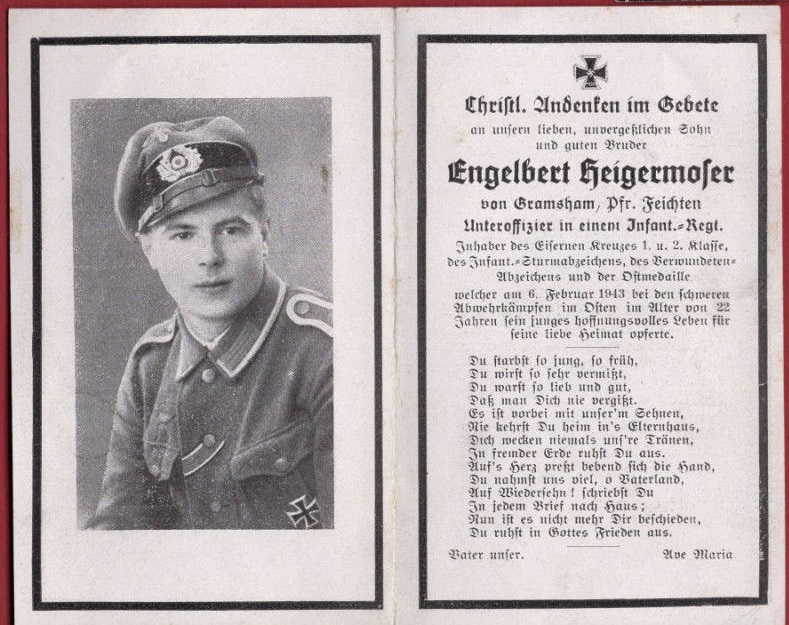 Christl. Andenken im Gebete
an unsern lieben, unvergeßlichen Sohn
und guten Bruder
Engelbert Heigermoser
von Gramsham, Pfr. Feichten
Unteroffizier in einem Infant.=Regt.
Inhaber des Eisernen Kreuzes 1. u. 2. Klasse,
des Infant.=Sturmabzeichens, des Verwundeten=
Abzeichens und der Ostmedaille
welcher am 6. Februar 1943 bei den schweren
Abwehrkämpfen im Osten im Alter von 22
Jahren sein junges hoffnungsvolles Leben für
seine liebe Heimat opferte.
Du starbst so jung, so früh,
Du wirst so sehr vermißt,
Du warst so lieb und gut,
Daß man Dich nie vergißt.
Es ist vorbei mit unser'm Sehnen,
Nie kehrst Du heim in's Elternhaus,
Dich wecken niemals uns're Tränen,
In fremder Erde ruhst Du aus.
Auf's Herz preßt bebend sich die Hand,
Du nahmst uns viel, o Vaterland,
Auf Wiedersehn! schriebst Du
In jedem Brief nach Haus;
Nun ist es nicht mehr Dir beschieden,
Du ruhst in Gottes Frieden aus.
Vater unser. Ave Maria